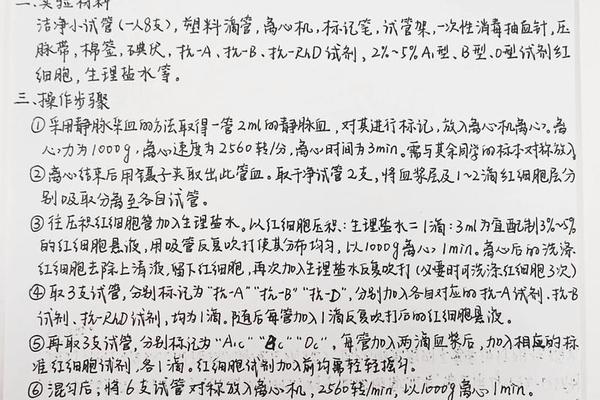 二、实验材料
洁净小试管(一人8支),塑料滴管,离心机,标记笔,试管架,一次性消毒抽血针,压
脉带,棉签,碘伏,抗-A、抗-B、抗-RhD试剂,2%~5%A₁型、B型、O型试剂红
细胞,生理盐水等。
三、操作步骤
①采用静脉采血的方法取得一管2ml的静脉血,对其进行标记,放入离心机离心。离
心力为1000g,离心速度为2560转/分,离心时间为3min。需与其余同学的标本对称放入
②离心结束后用镊子夹取出此管血。取干净试管2支,将血浆层及1~2滴红细胞层分
别吸取分离至各自试管。
③往压积红细胞管加入生理盐水。以红细胞压积:生理盐水=1滴:3ml为宜配制3%~5%
的红细胞悬液,用吸管反复吹打使其分布均匀,以1000g离心1min。离心后的洗涤
红细胞去除上清液,留下红细胞,再次加入生理盐水反复吹打(必要时可洗涤红细胞3次)
④取3支试管,分别标记为“抗-A”“抗-B”“抗-D”,分别加入各自对应的抗-A试剂、抗-B
试剂、抗-RhD试剂,均为1滴。随后每管加入1滴反复吹打后的红细胞悬液。
⑤再取3支试管,分别标记为“A₁c”“Bc”“Oc”,每管加入两滴血浆后,加入相应的标
准红细胞试剂,各1滴。红细胞试剂加入前均需轻轻摇匀。
⑥混匀后,将6支试管对称放入离心机,2560转/min,以1000g离心1min。